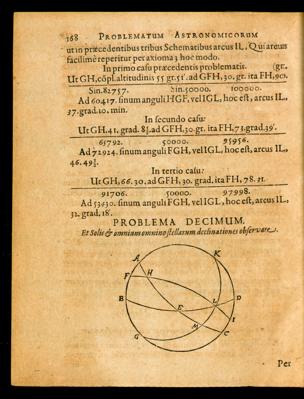 168 PROBLEMATUM ASTRONOMICORUM
ut in præcedentibus tribus Schematibus arcus IL, Qui arcus
facilimè reperitur per axioma 3 hoc modo.
In primo casu præcedentis problematis. (gr.
Ut GH, cópl. altitudinis 55 gr. 51'. ad GFH, 30. gr. ita FH, 90.
Sin. 82757. Sin. 50000. 100000.
Ad 60417. sinum anguli HGF, vel IGL, hoc est, arcus IL,
37. grad. 10. min.
In secundo casu:
Ut GH. 41. grad. 8½. ad GFH, 30. gr. ita FH, 73. grad. 39'.
65792. 50000. 95956.
Ad 72924. sinum anguli FGH, vel IGL, hoc est, arcus IL,
46. 49½.
In tertio casu:
Ut GH, 66. 30. ad GFH, 30. grad. ita FH, 78. 31.
91706. 50000. 97998.
Ad 53430. sinum anguli FGH, vel IGL, hoc est, arcus IL,
32. grad. 18'.
PROBLEMA DECIMUM.
Et Solis & omnium omnino stellarum declinationes observare.
A K
F H
B E L D
M I
G C
Per